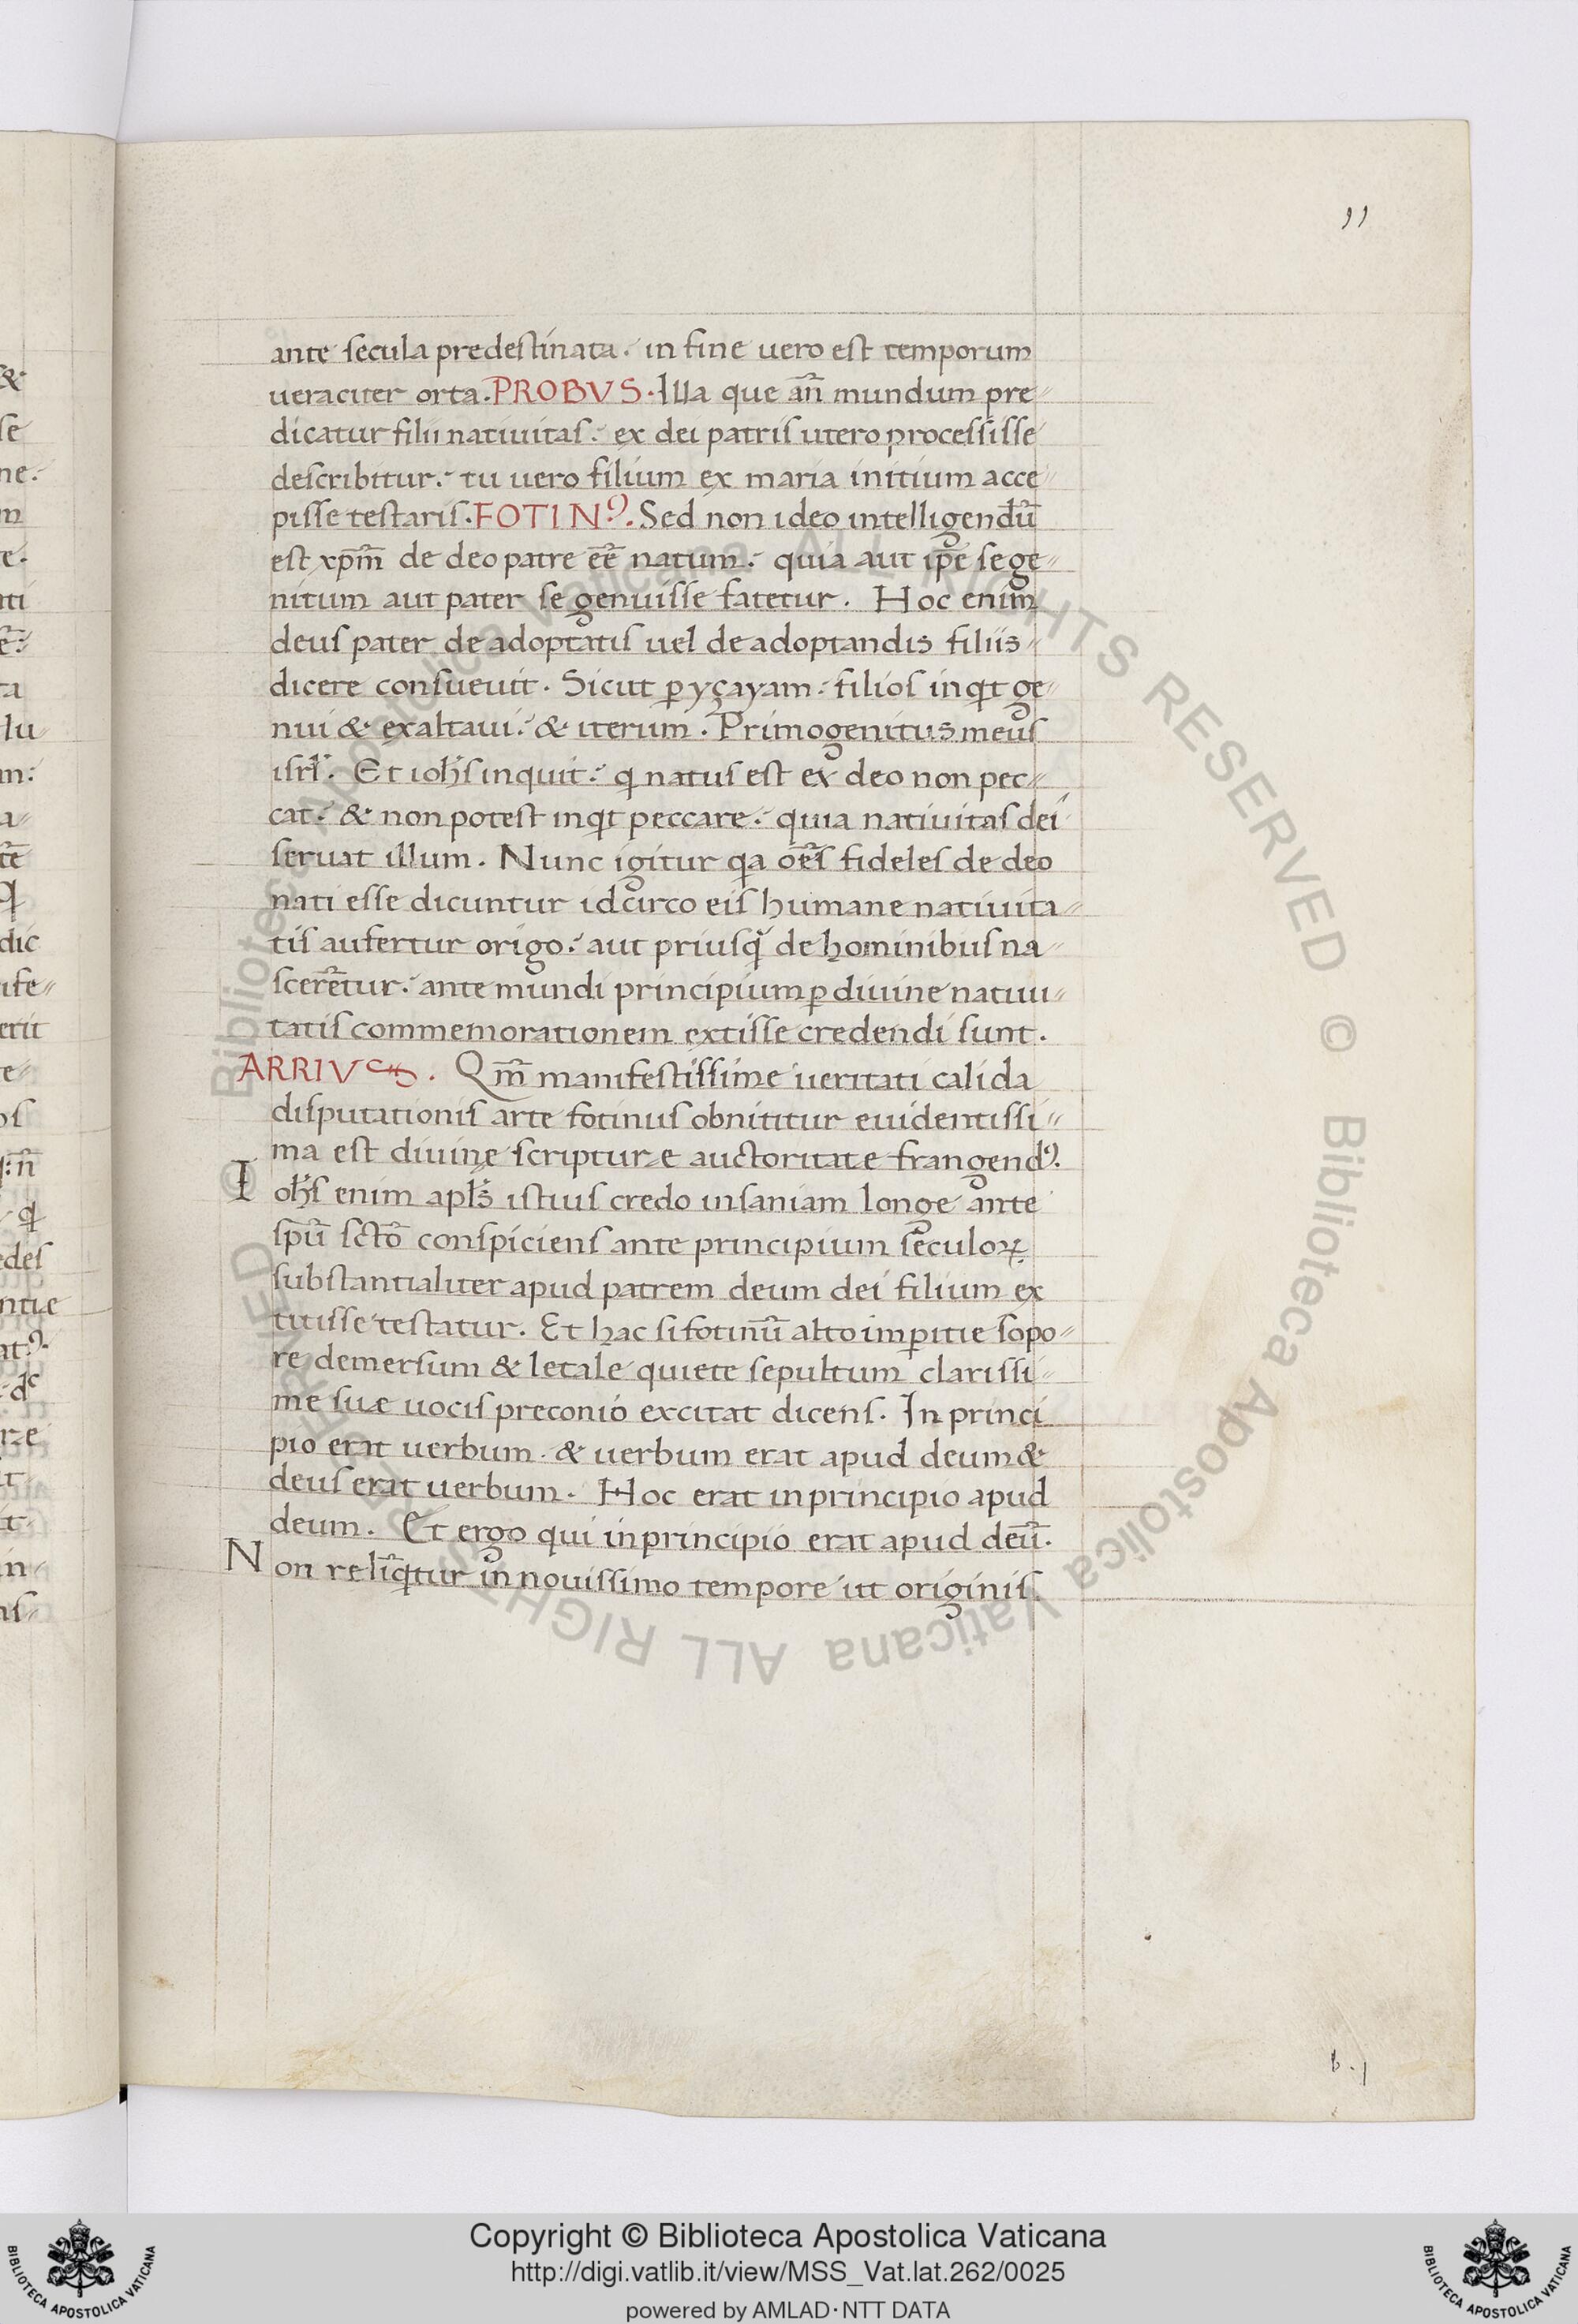 11
ante secula predestinata. in fine uero est temporum
ueraciter orta. PROBVS. Illa que añ mundum pre
dicatur filii natiuitas. ex dei patris utero processisse
describitur. tu uero filium ex maria initium acce
pisse testaris. FOTINꝰ. Sed non ideo intelligendū
est xpm̄ de deo patre eē natum. quia aut ip̄e se ge
nitum aut pater se genuisse fatetur. Hoc enim
deus pater de adoptatis uel de adoptandis filiis
dicere consueuit. Sicut ꝑ yçayam. filios inqt ge
nui & exaltaui. & iterum. Primogenitus meus
isrl̄. Et ioh̄s inquit. q natus est ex deo non pec
cat. & non potest inqt peccare. quia natiuitas dei
seruat illum. Nunc igitur qa oēs fideles de deo
nati esse dicuntur idcirco eis humane natiuita
tis aufertur origo. aut priusq̄ de hominibus na
scerētur. ante mundi principium ꝑ diuine natiui
tatis commemorationem extisse credendi sunt.
ARRIVS. Qm̄ manifestissime ueritati calida
disputationis arte fotinus obnititur euidentissi
ma est diuine scripture auctoritate frangendꝰ.
Ioh̄s enim apl̄s istius credo insaniam longe ante
spū sctō conspiciens ante principium seculoꝝ
substantialiter apud patrem deum dei filium ex
titisse testatur. Et hac si fotinū alto imꝑitie sopo
re demersum & letale quiete sepultum clarissi
me suæ uocis preconio excitat dicens. In princi
pio erat uerbum. & uerbum erat apud deum &
deus erat uerbum. Hoc erat in principio apud
deum. Et ergo qui in principio erat apud deū.
Non reliqtur in nouissimo tempore ut originis
b.j
Copyright © Biblioteca Apostolica Vaticana
http://digi.vatlib.it/view/MSS_Vat.lat.262/0025
powered by AMLAD·NTT DATA